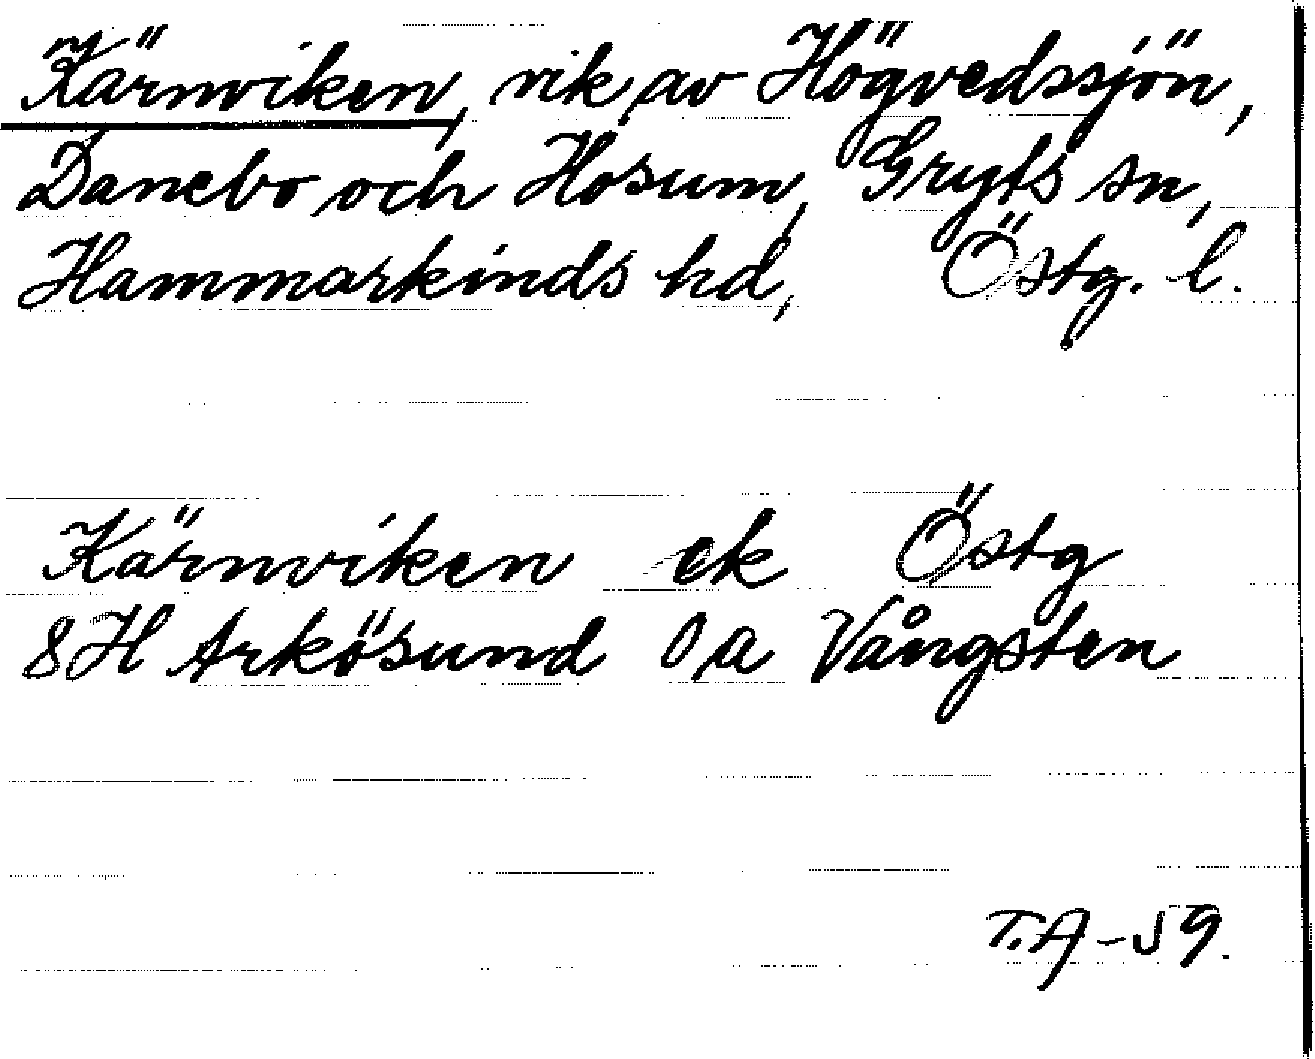 Kärnviken, vik av Högvedssjön,
Danebo och Hosum, Gryts sn,
Hammarkinds hd, Östg. l.
Kärnviken ek Östg
8H Arkösund 0 a Vångsten
T.A-59.